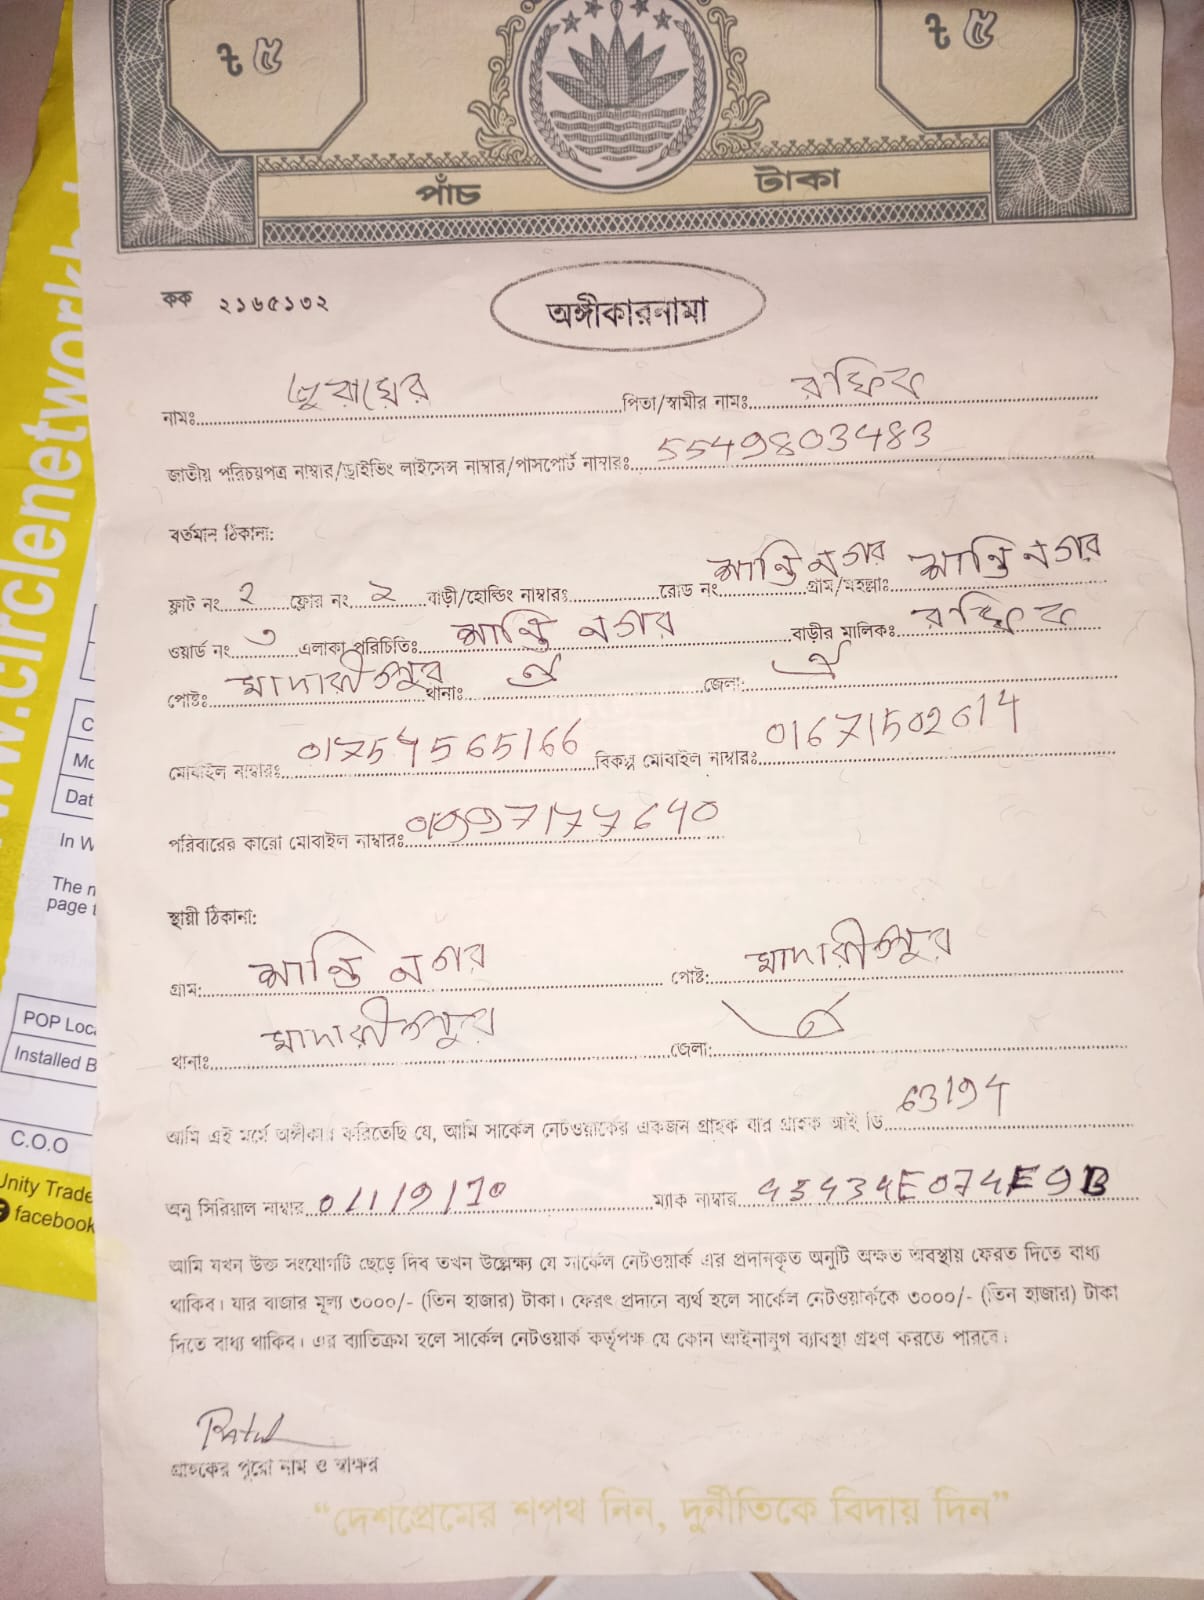 ৳ ৫ ৳ ৫
পাঁচ টাকা
কক ২১৬৫১৩২
অঙ্গীকারনামা
নামঃ জুবায়ের পিতা/স্বামীর নামঃ রফিক
জাতীয় পরিচয়পত্র নাম্বার/ড্রাইভিং লাইসেন্স নাম্বার/পাসপোর্ট নাম্বারঃ 5549803483
বর্তমান ঠিকানা:
ফ্লাট নং ২ ফ্লোর নং ২ বাড়ী/হোল্ডিং নাম্বারঃ রোড নং শান্তি নগর গ্রাম/মহল্লাঃ শান্তি নগর
ওয়ার্ড নং ৩ এলাকা পরিচিতিঃ শান্তি নগর বাড়ীর মালিকঃ রফিক
পোষ্টঃ মাদারীপুর থানাঃ ঐ জেলা: ঐ
মোবাইল নাম্বারঃ 01754565166 বিকল্প মোবাইল নাম্বারঃ 01671502614
পরিবারের কারো মোবাইল নাম্বারঃ
স্থায়ী ঠিকানা:
গ্রাম: শান্তি নগর পোষ্ট: মাদারীপুর
থানাঃ মাদারীপুর জেলা: ঐ
আমি এই মর্মে অঙ্গীকার করিতেছি যে, আমি সার্কেল নেটওয়ার্কের একজন গ্রাহক যার গ্রাহক আই ডি 63194
অনু সিরিয়াল নাম্বার 0/1/9/10 ম্যাক নাম্বার 45434E074E9B
আমি যখন উক্ত সংযোগটি ছেড়ে দিব তখন উল্লেক্ষ্য যে সার্কেল নেটওয়ার্ক এর প্রদানকৃত অনুটি অক্ষত অবস্থায় ফেরত দিতে বাধ্য
থাকিব। যার বাজার মূল্য ৩০০০/- (তিন হাজার) টাকা। ফেরৎ প্রদানে ব্যর্থ হলে সার্কেল নেটওয়ার্ককে ৩০০০/- (তিন হাজার) টাকা
দিতে বাধ্য থাকিব। এর ব্যাতিক্রম হলে সার্কেল নেটওয়ার্ক কর্তৃপক্ষ যে কোন আইনানুগ ব্যাবস্থা গ্রহণ করতে পারবে।
গ্রাহকের পুরো নাম ও স্বাক্ষর
“দেশপ্রেমের শপথ নিন, দুর্নীতিকে বিদায় দিন”
www.circlenetwork
C
Mo
Dat
In W
The n
page t
POP Loc
Installed B
C.O.O
Unity Trade
facebook